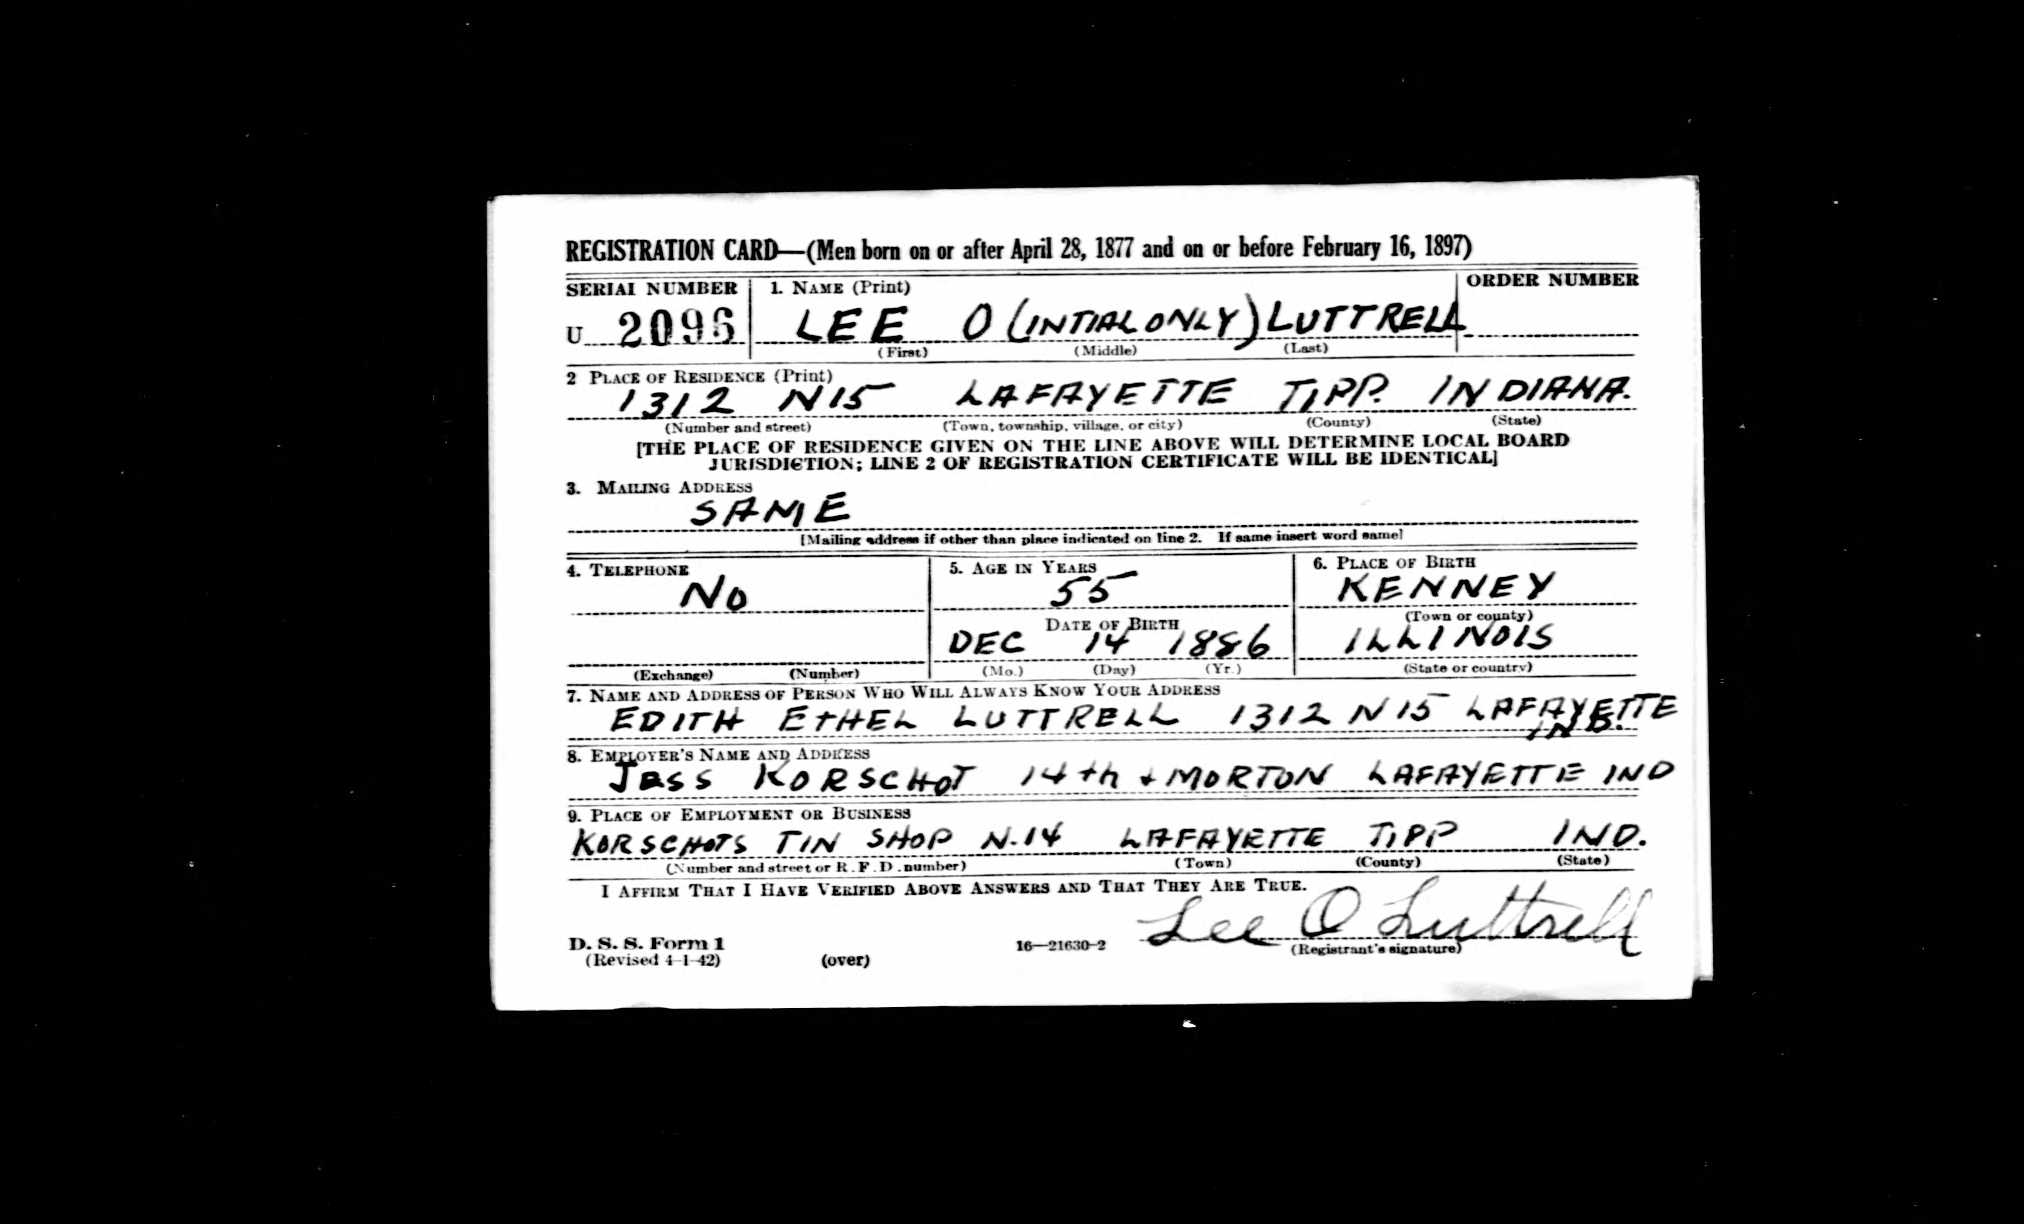 REGISTRATION CARD—(Men born on or after April 28, 1877 and on or before February 16, 1897)
SERIAL NUMBER 1. NAME (Print) ORDER NUMBER
U 2096 LEE O (INTIAL ONLY) LUTTRELL
(First) (Middle) (Last)
2 PLACE OF RESIDENCE (Print)
1312 N15 LAFAYETTE TIPP. INDIANA.
(Number and street) (Town, township, village, or city) (County) (State)
[THE PLACE OF RESIDENCE GIVEN ON THE LINE ABOVE WILL DETERMINE LOCAL BOARD
JURISDICTION; LINE 2 OF REGISTRATION CERTIFICATE WILL BE IDENTICAL]
3. MAILING ADDRESS
SAME
[Mailing address if other than place indicated on line 2. If same insert word same]
4. TELEPHONE 5. AGE IN YEARS 6. PLACE OF BIRTH
NO 55 KENNEY
DATE OF BIRTH (Town or county)
DEC 14 1886 ILLINOIS
(Exchange) (Number) (Mo.) (Day) (Yr.) (State or country)
7. NAME AND ADDRESS OF PERSON WHO WILL ALWAYS KNOW YOUR ADDRESS
EDITH ETHEL LUTTRELL 1312 N15 LAFAYETTE
IND.
8. EMPLOYER'S NAME AND ADDRESS
JESS KORSCHOT 14th + MORTON LAFAYETTE IND
9. PLACE OF EMPLOYMENT OR BUSINESS
KORSCHOTS TIN SHOP N.14 LAFAYETTE TIPP IND.
(Number and street or R. F. D. number) (Town) (County) (State)
I AFFIRM THAT I HAVE VERIFIED ABOVE ANSWERS AND THAT THEY ARE TRUE.
Lee O Luttrell
D. S. S. Form 1 16—21630-2 (Registrant's signature)
(Revised 4-1-42) (over)